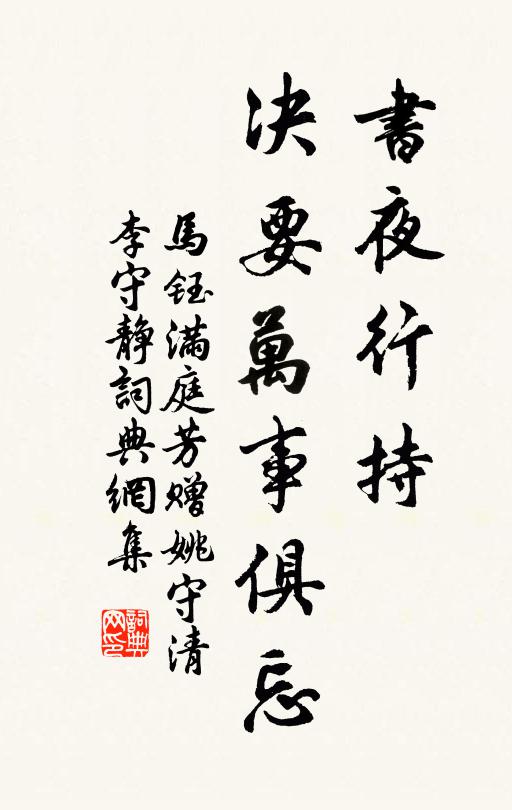 書夜行持
决要萬事俱忘
馬鈺滿庭芳赠姚守清
李守靜詞典網集
詞典
网印